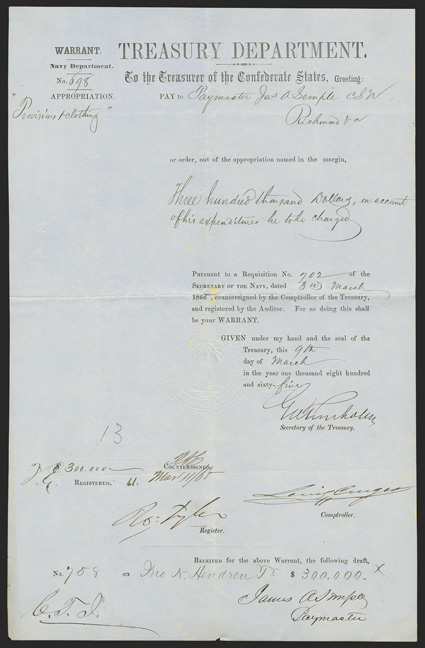 WARRANT.
Navy Department.
No. 698
APPROPRIATION.
"Provisions & clothing"
TREASURY DEPARTMENT.
To the Treasurer of the Confederate States, Greeting:
PAY to Paymaster Jas A Semple CSN
Richmond Va
or order, out of the appropriation named in the margin,
Three hundred thousand Dollars, on account
of his expenditures he to be charged
Pursuant to a Requisition No. 702 of the
SECRETARY OF THE NAVY, dated 3rd March
1865, countersigned by the Comptroller of the Treasury,
and registered by the Auditor. For so doing this shall
be your WARRANT.
GIVEN under my hand and the seal of the
Treasury, this 9th
day of March
in the year one thousand eight hundred
and sixty-five
GA Trenholm
Secretary of the Treasury.
13
$ 300.000
COUNTERSIGNED,
REGISTERED,
Mar 9/65
Lewis Cruger
Comptroller.
Ro: Tyler
Register.
RECEIVED for the above Warrant, the following draft,
No. 758 on Jno N. Hendren Tr $ 300.000. x
James A Semple
Paymaster